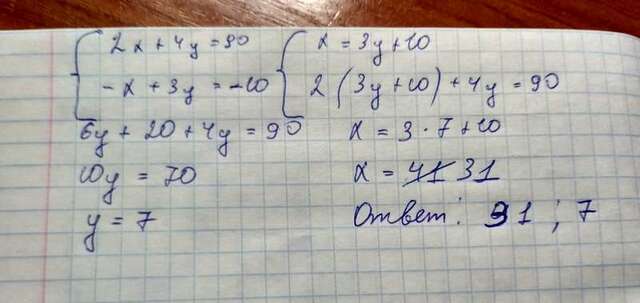 2x + 4y = 90
-x + 3y = -10
x = 3y + 10
2(3y + 10) + 4y = 90
6y + 20 + 4y = 90
10y = 70
y = 7
x = 3 · 7 + 10
x = 41 31
Ответ: 31 ; 7